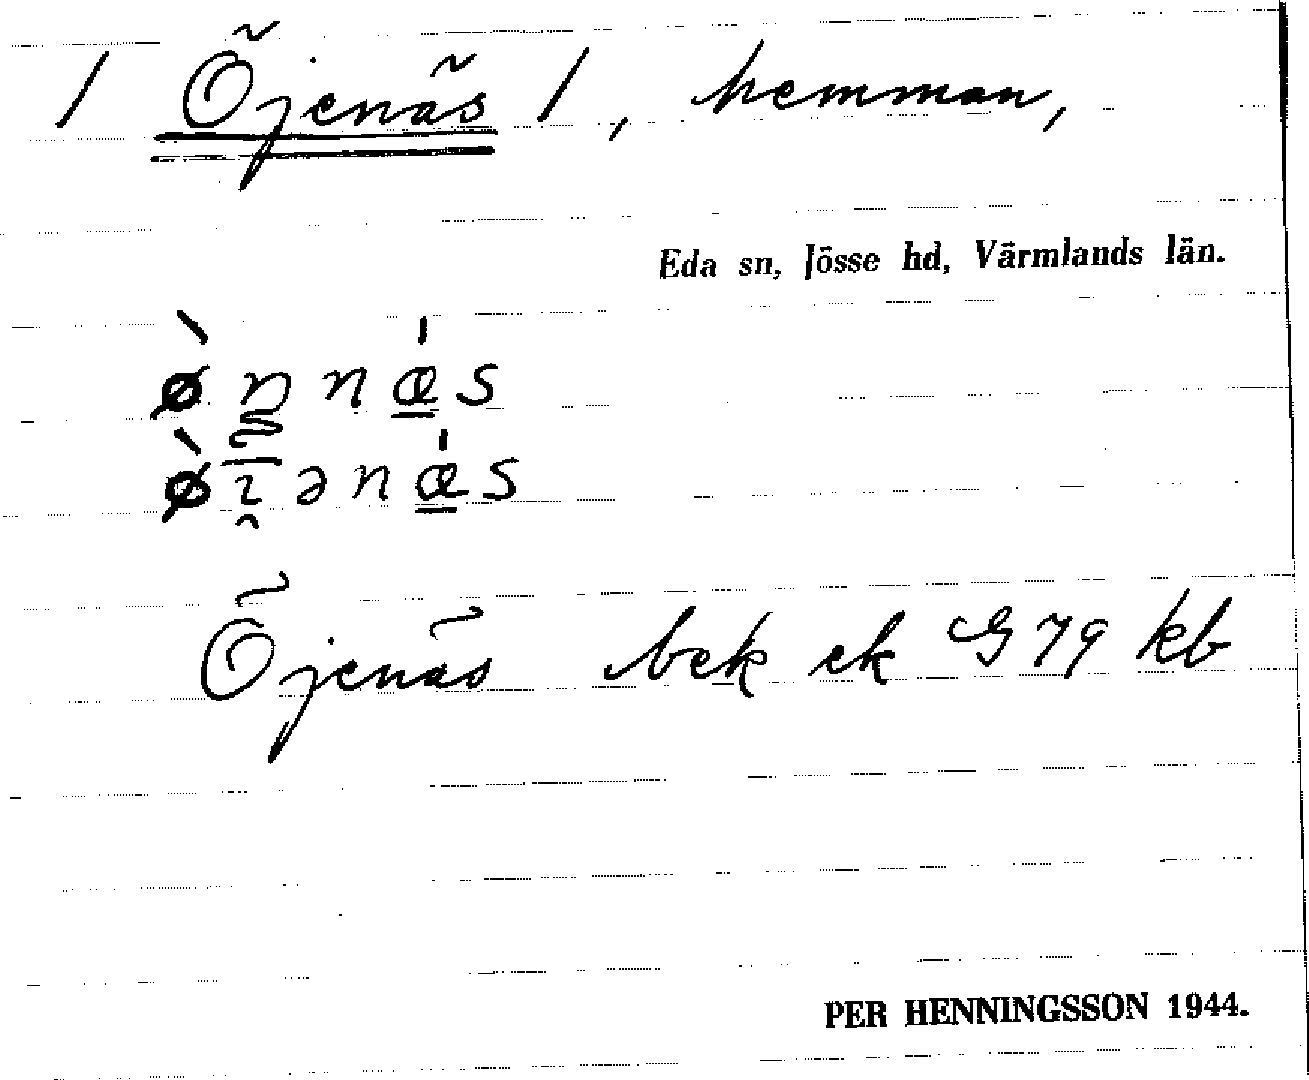 / Öjenäs /, hemman,
Eda sn, Jösse hd, Värmlands län.
Öjenäs bek ek G 79 kb
PER HENNINGSSON 1944.